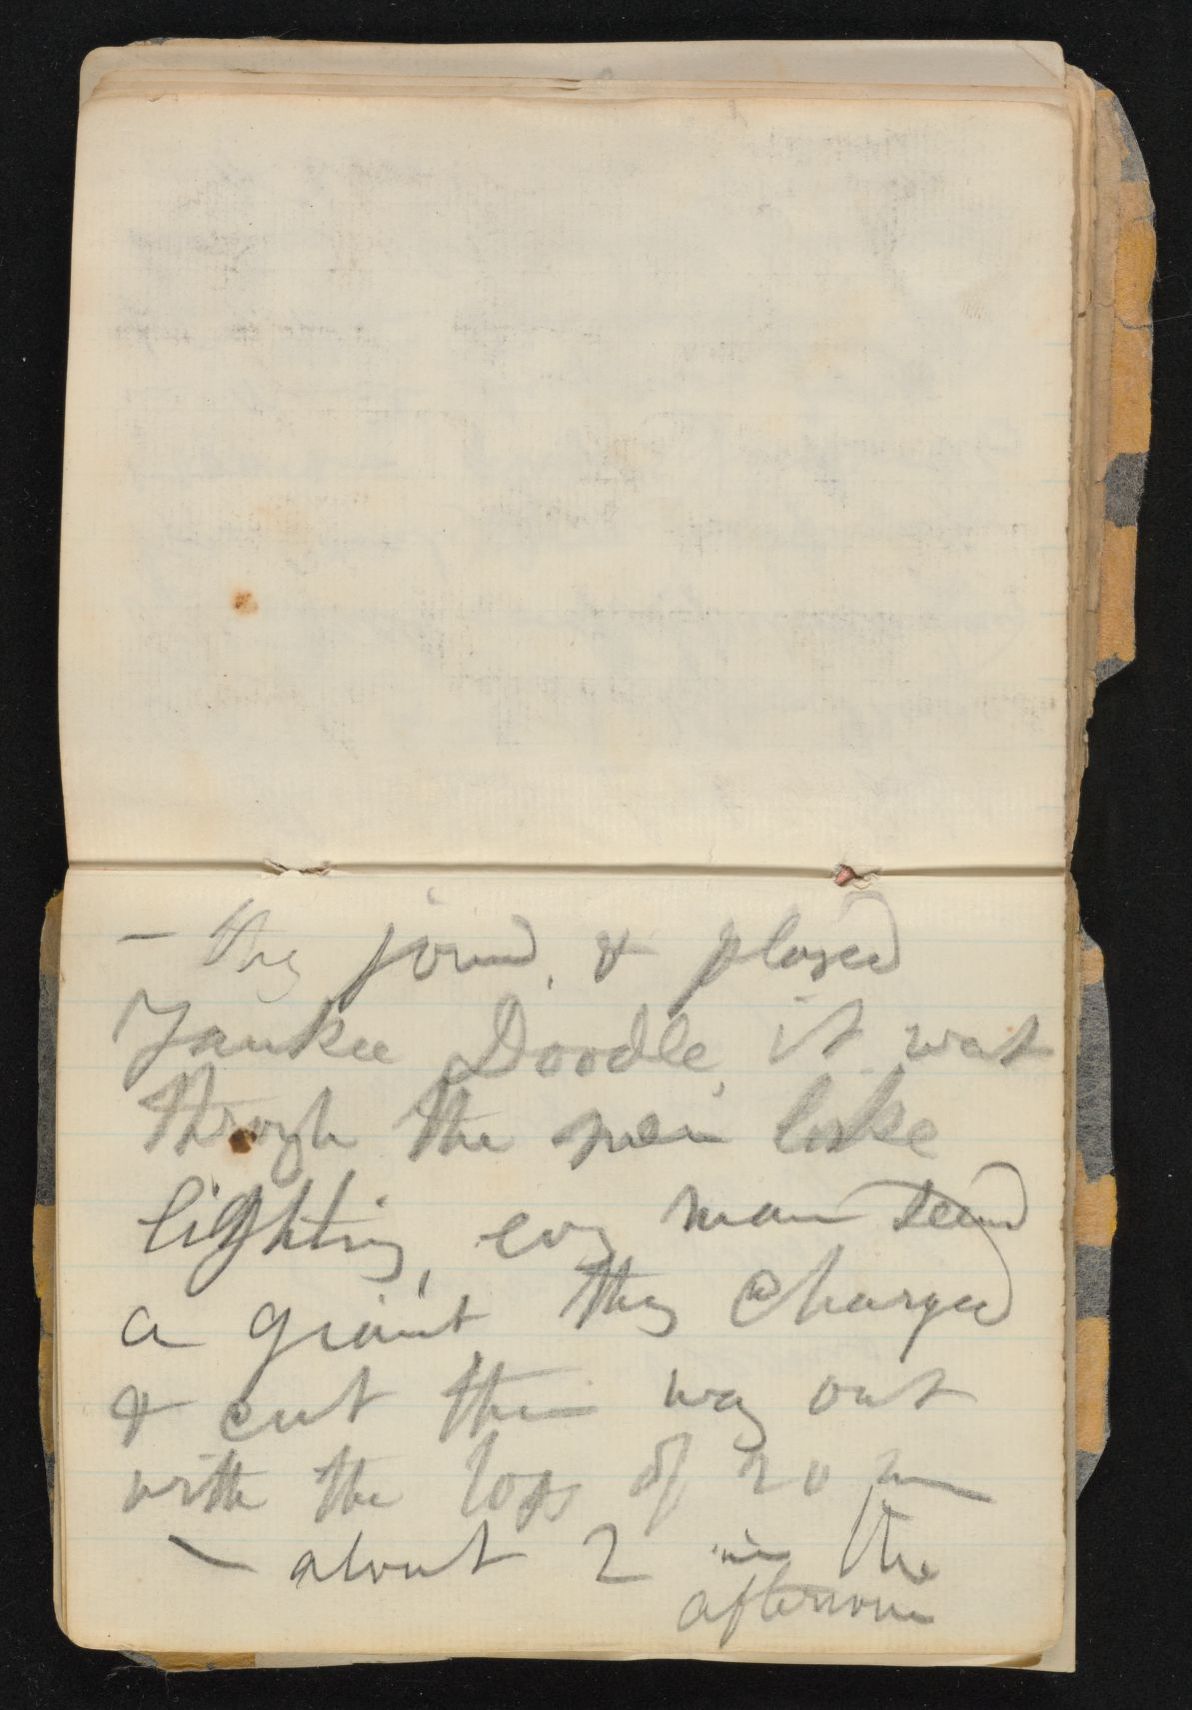 — they joined, & played
Yankee Doodle, it went
through the men like
lightning, every man
a giant they charged
& cut their way out
with the loss of 20 m
— about 2 in the
afternoon